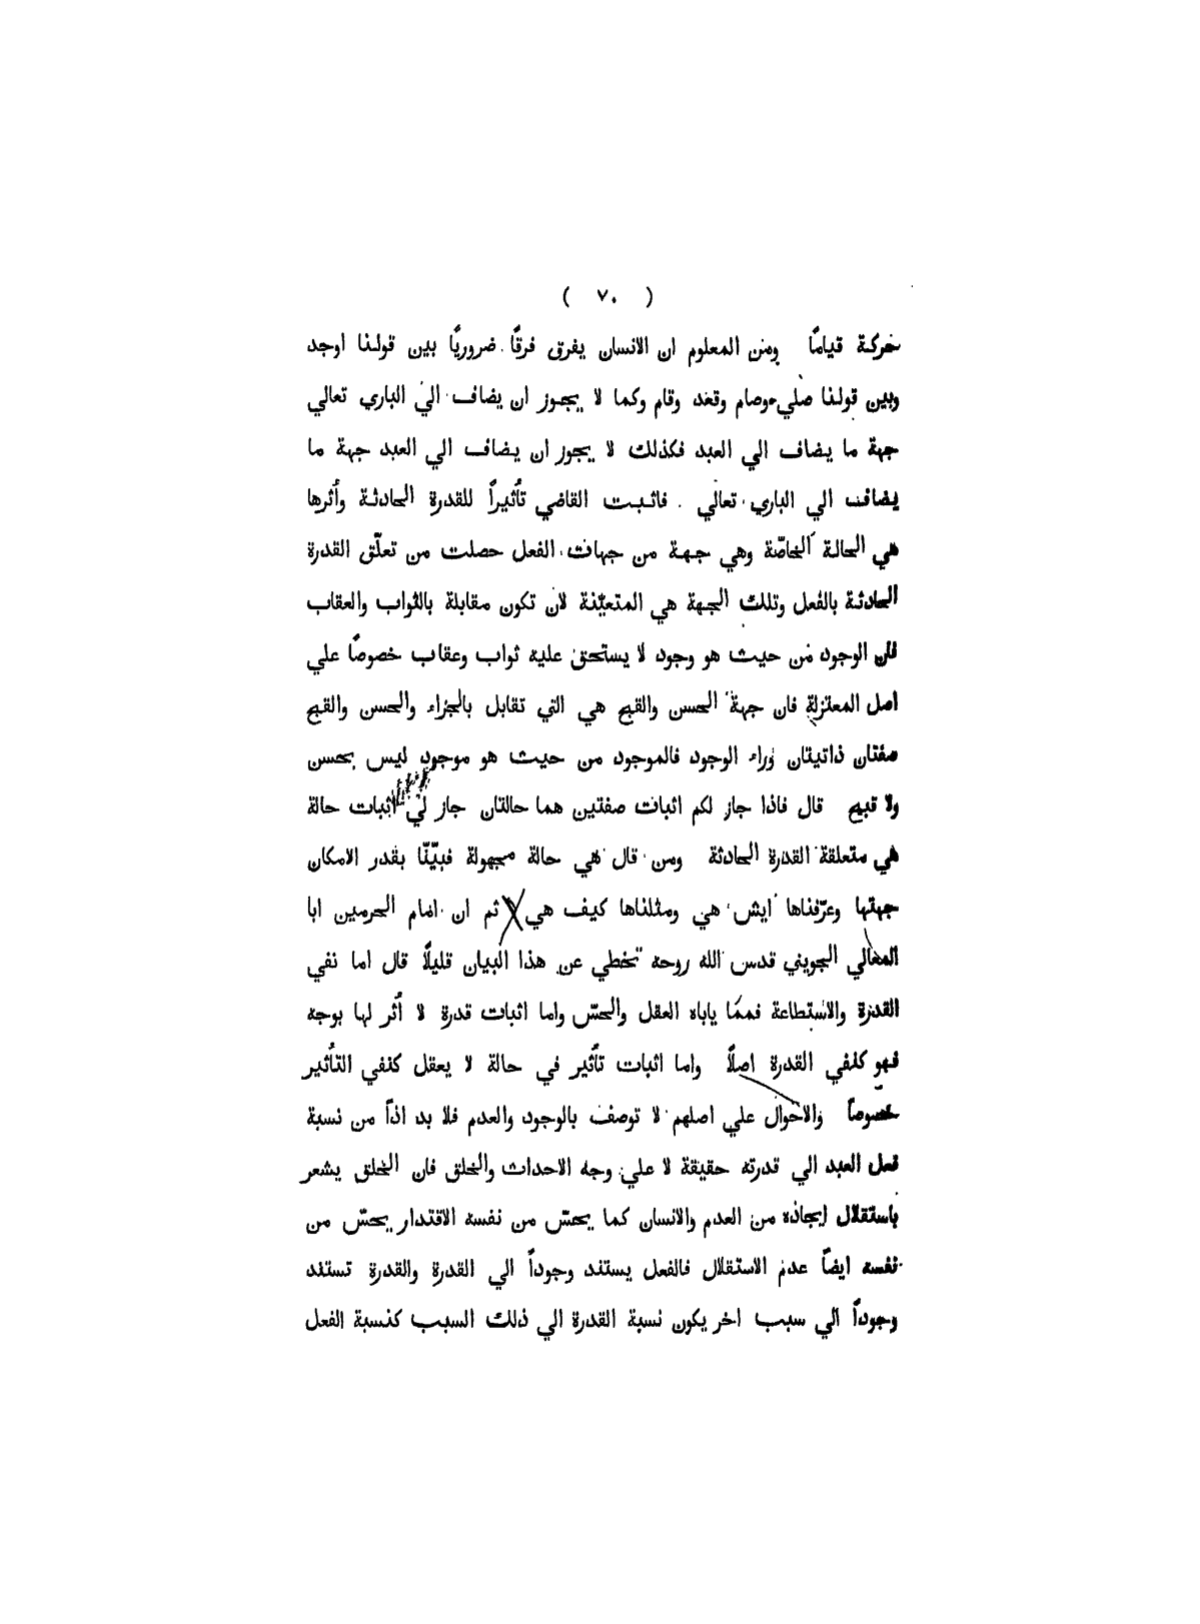 ( ٧٠ )
حركة قيامًا ومن المعلوم ان الانسان يفرق فرقًا ضروريًا بين قولنا اوجد
وبين قولنا صلي وصام وقعد وقام وكما لا يجوز ان يضاف الي الباري تعالي
جهة ما يضاف الي العبد فكذلك لا يجوز ان يضاف الي العبد جهة ما
يضاف الي الباري تعالي . فاثبت القاضي تأثيراً للقدرة الحادثة وأثرها
هي الحالة الخاصّة وهي جهة من جهات الفعل حصلت من تعلّق القدرة
الحادثة بالفعل وتلك الجهة هي المتعيّنة لان تكون مقابلة بالثواب والعقاب
فان الوجود من حيث هو وجود لا يستحق عليه ثواب وعقاب خصوصًا علي
اصل المعتزلة فان جهة الحسن والقبح هي التي تقابل بالجزاء والحسن والقبح
صفتان ذاتيتان وراء الوجود فالموجود من حيث هو موجود ليس بحسن
ولا قبيح قال فاذا جاز لكم اثبات صفتين هما حالتان جاز لي اثبات حالة
هي متعلقة القدرة الحادثة ومن قال هي حالة مجهولة فبيّنّا بقدر الامكان
جهتها وعرّفناها ايش هي ومثلناها كيف هي ثم ان امام الحرمين ابا
المعالي الجويني قدس الله روحه تخطي عن هذا البيان قليلًا قال اما نفي
القدرة والاستطاعة فممّا ياباه العقل والحسّ واما اثبات قدرة لا أثر لها بوجه
فهو كنفي القدرة اصلًا واما اثبات تأثير في حالة لا يعقل كنفي التأثير
خصوصاً والاحوال علي اصلهم لا توصف بالوجود والعدم فلا بد اذاً من نسبة
فعل العبد الي قدرته حقيقة لا علي وجه الاحداث والخلق فان الخلق يشعر
باستقلال ايجاده من العدم والانسان كما يحسّ من نفسه الاقتدار يحسّ من
نفسه ايضاً عدم الاستقلال فالفعل يستند وجوداً الي القدرة والقدرة تستند
وجوداً الي سبب اخر يكون نسبة القدرة الي ذلك السبب كنسبة الفعل